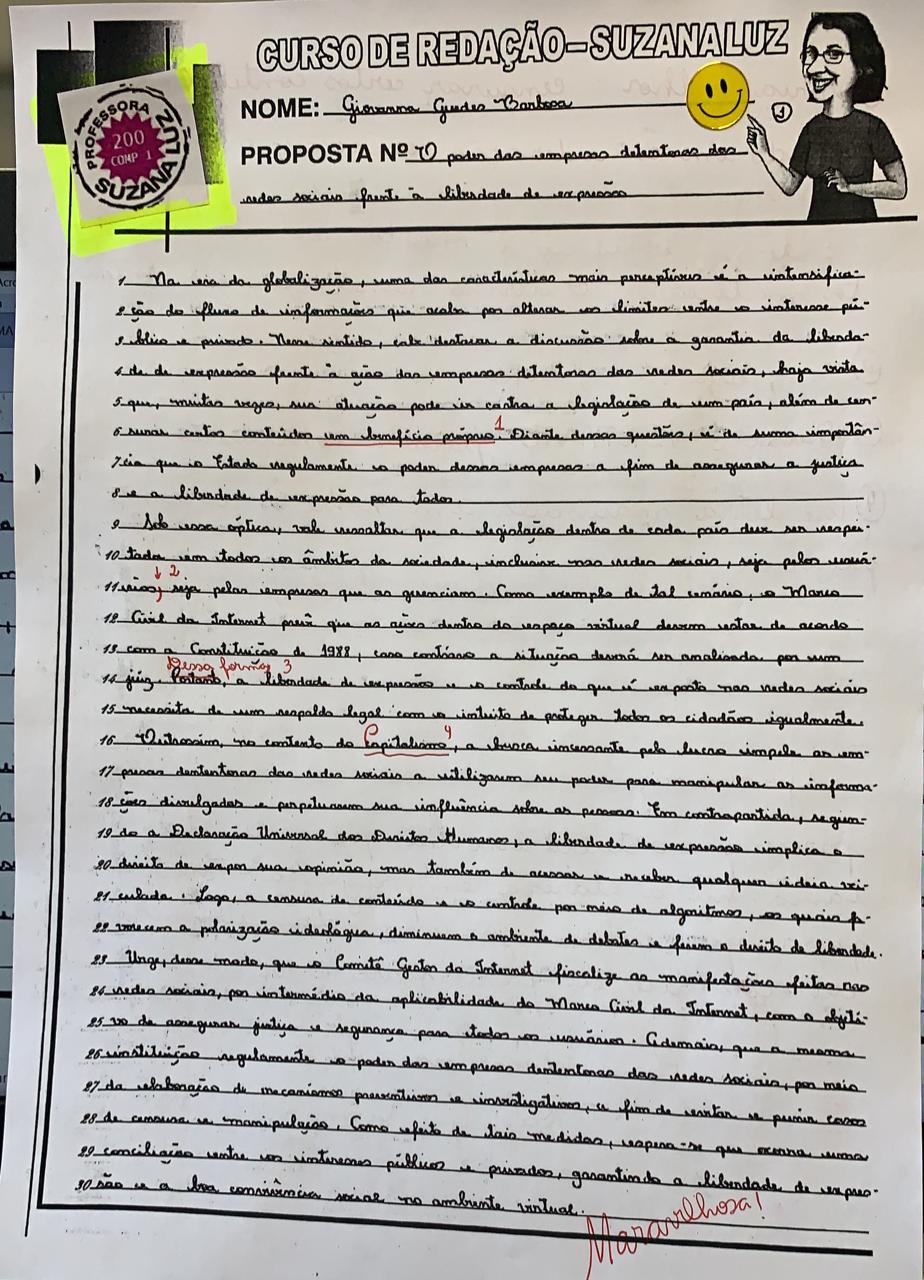 CURSO DE REDAÇÃO-SUZANA LUZ
PROFESSORA
200
COMP 1
SUZANA LUZ
NOME: Giovanna Guedes Barbosa
1
PROPOSTA Nº O poder das empresas detentoras das
redes sociais frente à liberdade de expressão
1 Na era da globalização, uma das características mais perceptíveis é a intensifica-
2 ção do fluxo de informações que acaba por alterar os limites entre o interesse pú-
3 blico e privado. Nesse sentido, cabe destacar a discussão sobre a garantia da liberda-
4 de de expressão frente à ação das empresas detentoras das redes sociais, haja vista
5 que, muitas vezes, sua atuação pode ir contra a legislação de um país, além de cen-
6 surar certos conteúdos em benefício próprio. 1 Diante dessas questões, é de suma importân-
7 cia que o Estado regulamente o poder dessas empresas a fim de assegurar a justiça
8 e a liberdade de expressão para todos.
9 Sob essa óptica, vale ressaltar que a legislação dentro de cada país deve ser respei-
10 tada em todos os âmbitos da sociedade, inclusive nas redes sociais, seja pelos usuá-
2
11 rios, seja pelas empresas que as gerenciam. Como exemplo de tal cenário, o Marco
12 Civil da Internet prevê que as ações dentro do espaço virtual devem estar de acordo
13 com a Constituição de 1988, caso contrário a situação deverá ser analisada por um
Dessa forma 3
14 juiz. Portanto, a liberdade de expressão e o controle do que é exposto nas redes sociais
15 necessita de um respaldo legal com o intuito de proteger todos os cidadãos igualmente.
16 Outrossim, no contexto do Capitalismo 4, a busca incessante pelo lucro impele as em-
17 presas dententoras das redes sociais a utilizarem seu poder para manipular as informa-
18 ções divulgadas e perpetuarem sua influência sobre as pessoas. Em contrapartida, segun-
19 do a Declaração Universal dos Direitos Humanos, a liberdade de expressão implica o
20 direito de expor sua opinião, mas também de acessar e receber qualquer ideia vei-
21 culada. Logo, a censura de conteúdo e o controle por meio de algoritmos, os quais fa-
22 vorecem a polarização ideológica, diminuem o ambiente de debates e ferem o direito de liberdade.
23 Urge, desse modo, que o Comitê Gestor da Internet fiscalize as manifestações feitas nas
24 redes sociais, por intermédio da aplicabilidade do Marco Civil da Internet, com o objeti-
25 vo de assegurar justiça e segurança para todos os usuários. Ademais, que a mesma
26 instituição regulamente o poder das empresas dententoras das redes sociais, por meio
27 da elaboração de mecanismos preventivos e investigativos, a fim de evitar e punir casos
28 de censura e manipulação. Como efeito de tais medidas, espera-se que ocorra uma
29 conciliação entre os interesses públicos e privados, garantindo a liberdade de expres-
30 são e a boa convivência social no ambiente virtual.
Maravilhosa!